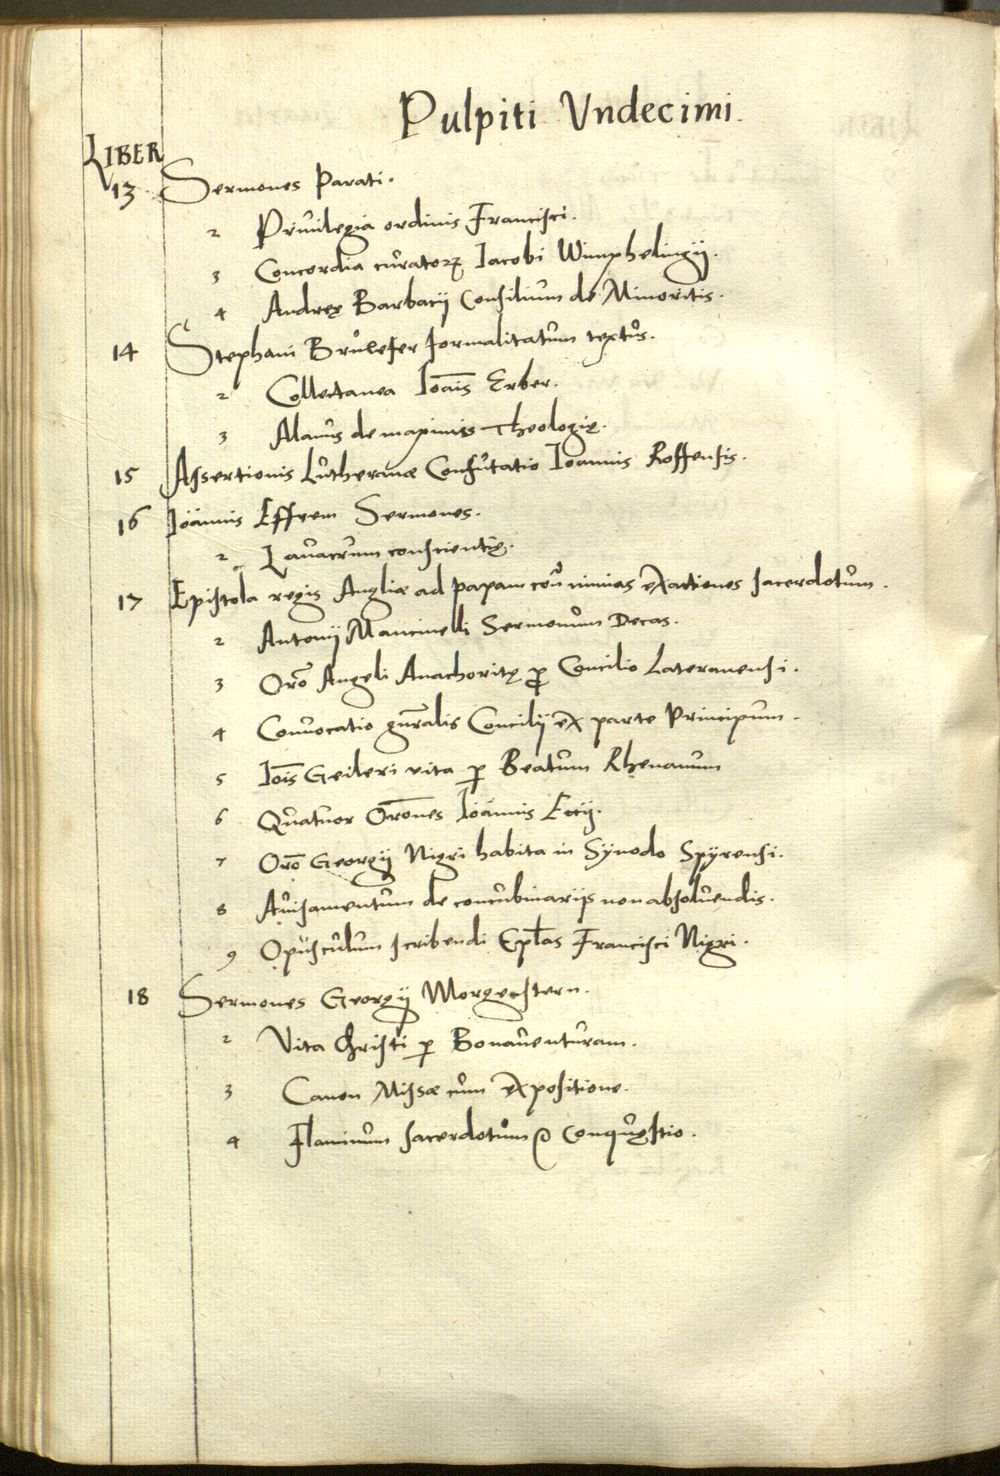 Pulpiti Vndecimi.
LIBER
13 Sermones Parati.
2 Priuilegia ordinis Francisci.
3 Concordia curatorꝝ Iacobi Wimphelingij.
4 Andreę Barbacij Consilium de Minoritis.
14 Stephani Brulefer formalitatum textus.
2 Collectanea Ioāis Erber.
3 Alanus de maximis Theologię.
15 Assertionis Lutheranæ Confutatio Ioannis Roffensis.
16 Ioānnis Effrem Sermones.
2 Lauacrum conscientię.
17 Epistola regis Angliæ ad papam coñ nimias exactiones sacerdotum.
2 Antonij Mancinelli Sermonum Decas.
3 Orõ Angeli Anachoritę ꝓ Concilio Lateranensi.
4 Conuocatio gñralis Concilij ex parte Principum.
5 Iōis Geileri vita ꝑ Beatum Rhenanum
6 Quatuor Orōnes Ioānnis Eccij.
7 Orō Georgij Nigri habita in Synodo Spyrensi.
8 Auisamentum de concubinarijs non absoluendis.
9 Opusculum scribendi Epłas Francisci Nigri.
18 Sermones Georgij Morgenstern.
2 Vita Christi ꝑ Bonauenturam.
3 Canon Missæ cum expositione.
4 Flaminum sacerdotum conquęstio.